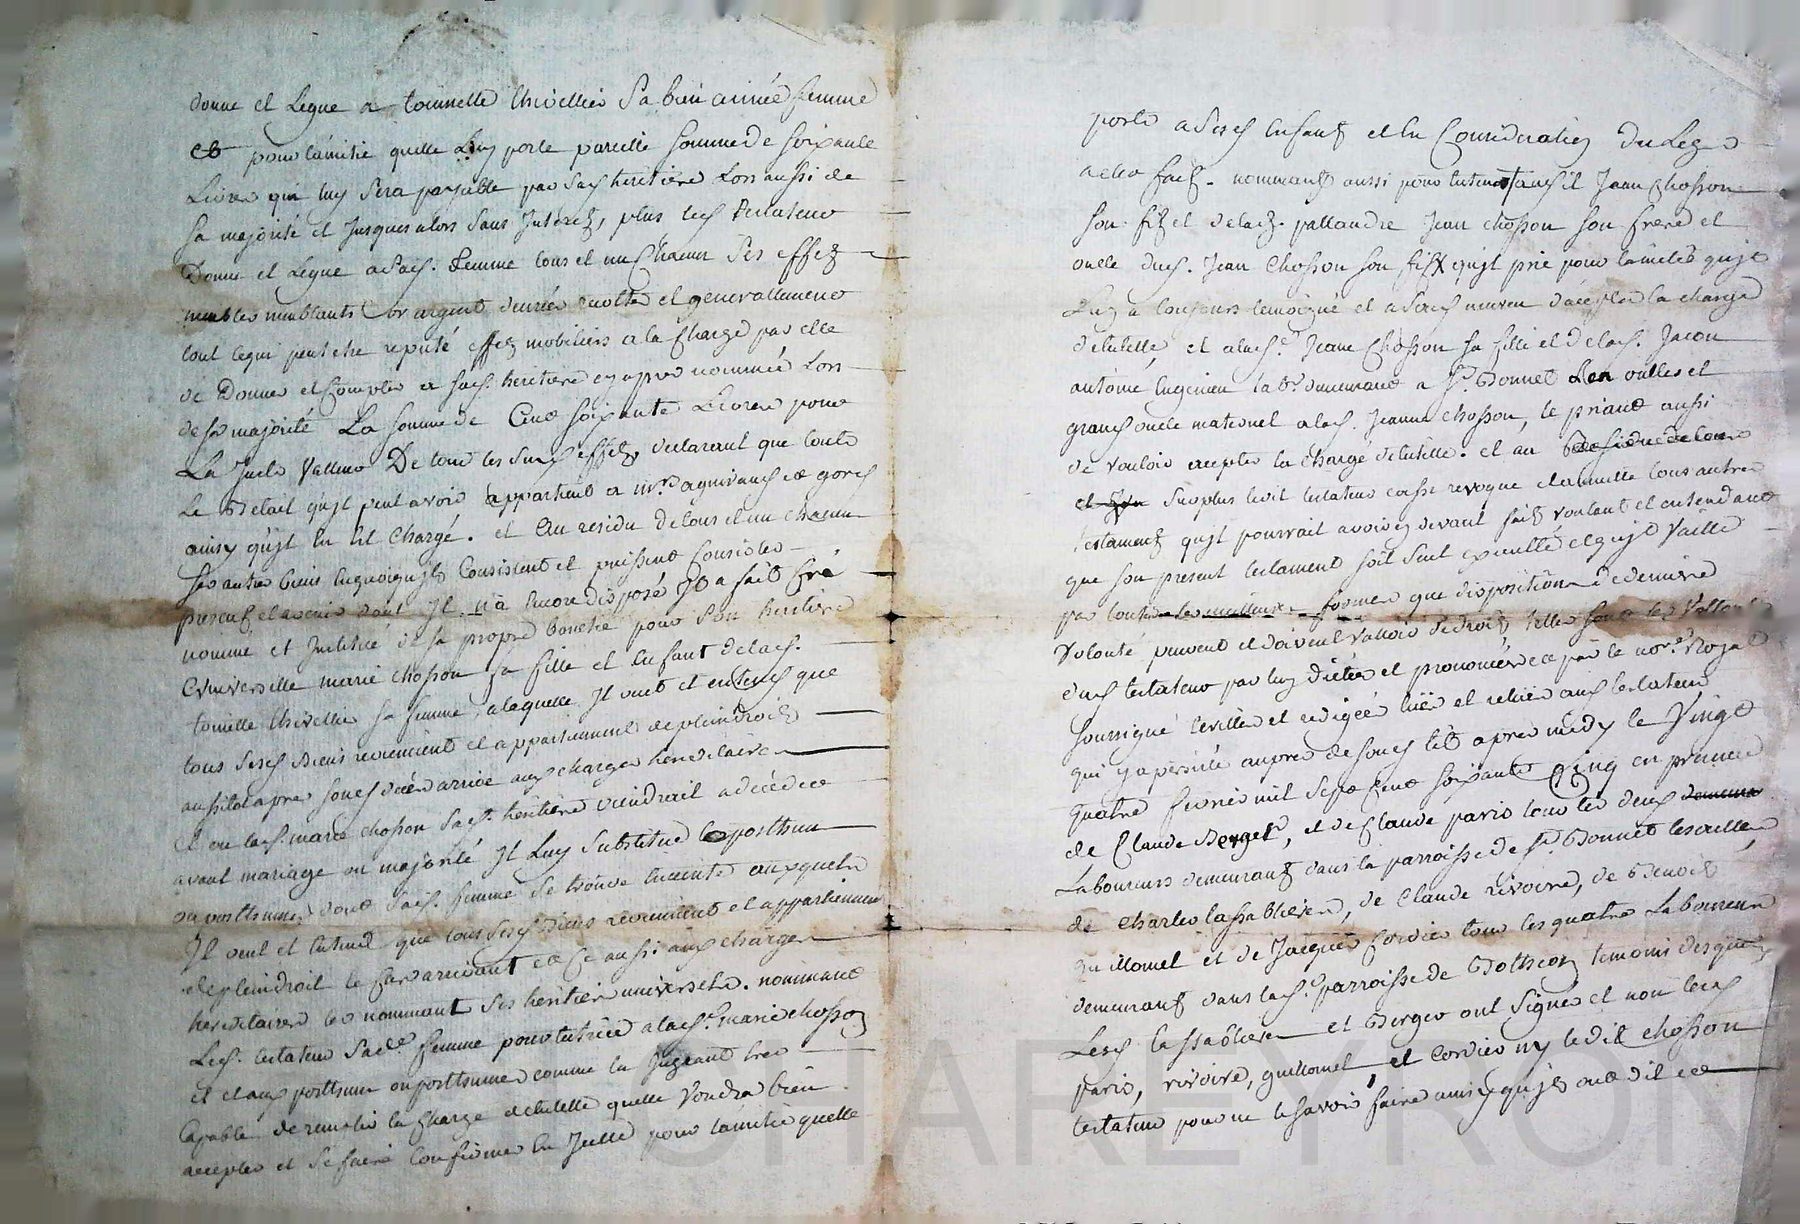 donne et Legue a toinnette Chivellier Sa bien aimée femme
et pour lamitié quelle Luy porte pareille somme de soixante
Livres qui luy sera payable par sad. heritiere Lors aussi de
sa majorité et Jusques alors sans Interetz, plus led. testateur
Donne et Legue a sad. femme tous et un Chacun ses effetz
meubles meublants or argent denrées recoltes et generallement
tout cequi peut etre reputé effetz mobiliers a la charge par elle
de Donner et Compter a sad. heritiere cy apres nommée Lors
de sa majorité La somme de Cent soixante Livres pour
La Juste valleur De tous les susd. effetz, declarant que toute
Le Betail quyl peut avoir appartient a mr. de gors
ainsy quyl en est chargé. et Au residu de tous et un chacun
ses autres biens enquoyquyls Consistent et puissent Consister
presents et avenir dont Jl n'a encore disposé Jl a fait créé
nommé et Institué de sa propre bouche pour son heritiere
Universelle marie chosson sa fille et enfant delad.
toinette Chivellier sa femme, alaquelle Jl veut et entend que
tous sesd. Biens reviennent et appartiennent de pleindroit
aussitot apres sond. décéd arrivé aux charges hereditaires
et ou lad. marie chosson sad. heritiere viendroit adécéder
avant mariage ou majorité Jl Luy substitue le posthume
ou posthumes dont sad. femme se trouve enceinte auxquels
Jl veut et entend que tous sesd. Biens reviennent et appartiennent
de pleindroit le cas arrivant et Ce aussi aux charges
hereditaires les nommant ses heritiers universels. nommant
Led. testateur sade. femme pour tutrice a lad. marie chosson
et et aux posthume ou posthumes comme la Jugeant tres
Capable de remplir la charge detutelle quelle voudra bien
accepter et se faire confirmer en Jcelle pour lamitié quelle
porte a sesd. enfants et en Consideration du Legs
a elle fait. nommant aussi pour tuteur Jean chosson
son fils et delad. pallandre Jean chosson son frere et
oncle dud. Jean Chosson son fils, quyl prie pour lamitié quyl
Luy a toujours temoigné et a sond. neveu d'accepter la charge
detutelle, et a lad. Jeane Chosson sa fille et delad.
antoine demeurant a St. Bonnet Les oulles et
grand oncle maternel a lad. Jeanne chosson, le priant aussi
de vouloir accepter la chargé detutelle. et au
surplus ledit testateur casse revoque et annulle tous autres
testaments quyl pourrait avoir cy devant fait voulant et entendant
que son present testament soit seul executté et quyl vaille
par toutes les meilleures formes que disposition de derniere
volonté peuvent et doivent valloir de droit, telles sont les vollontés
dud. testateur par luy dictées et prononcées et par le nore. Royal
soussigné ecrittes et redigées lües et relües aud. testateur
qui y a persisté aupres de sond. lit apres midy le vingt
quatre fevrier mil sept cent soixante Cinq en presence
de Claude Berger, et de Claude paris tous les deux
Laboureurs demeurants dans la parroisse de St. Bonnet lesoulles
de Charles lassabliere, de Claude rivoire, de Benoit
guillomet et de Jacques Cordier tous les quatre Laboureurs
demeurants dans lad. parroisse de Bottheon temoins desquels
Lesd. lassabliere et Berger ont signes et non lesd.
paris, rivoire, guillomet, et Cordier ny ledit chosson
testateur pour ne le savoir faire ainsy quyls ont dit et